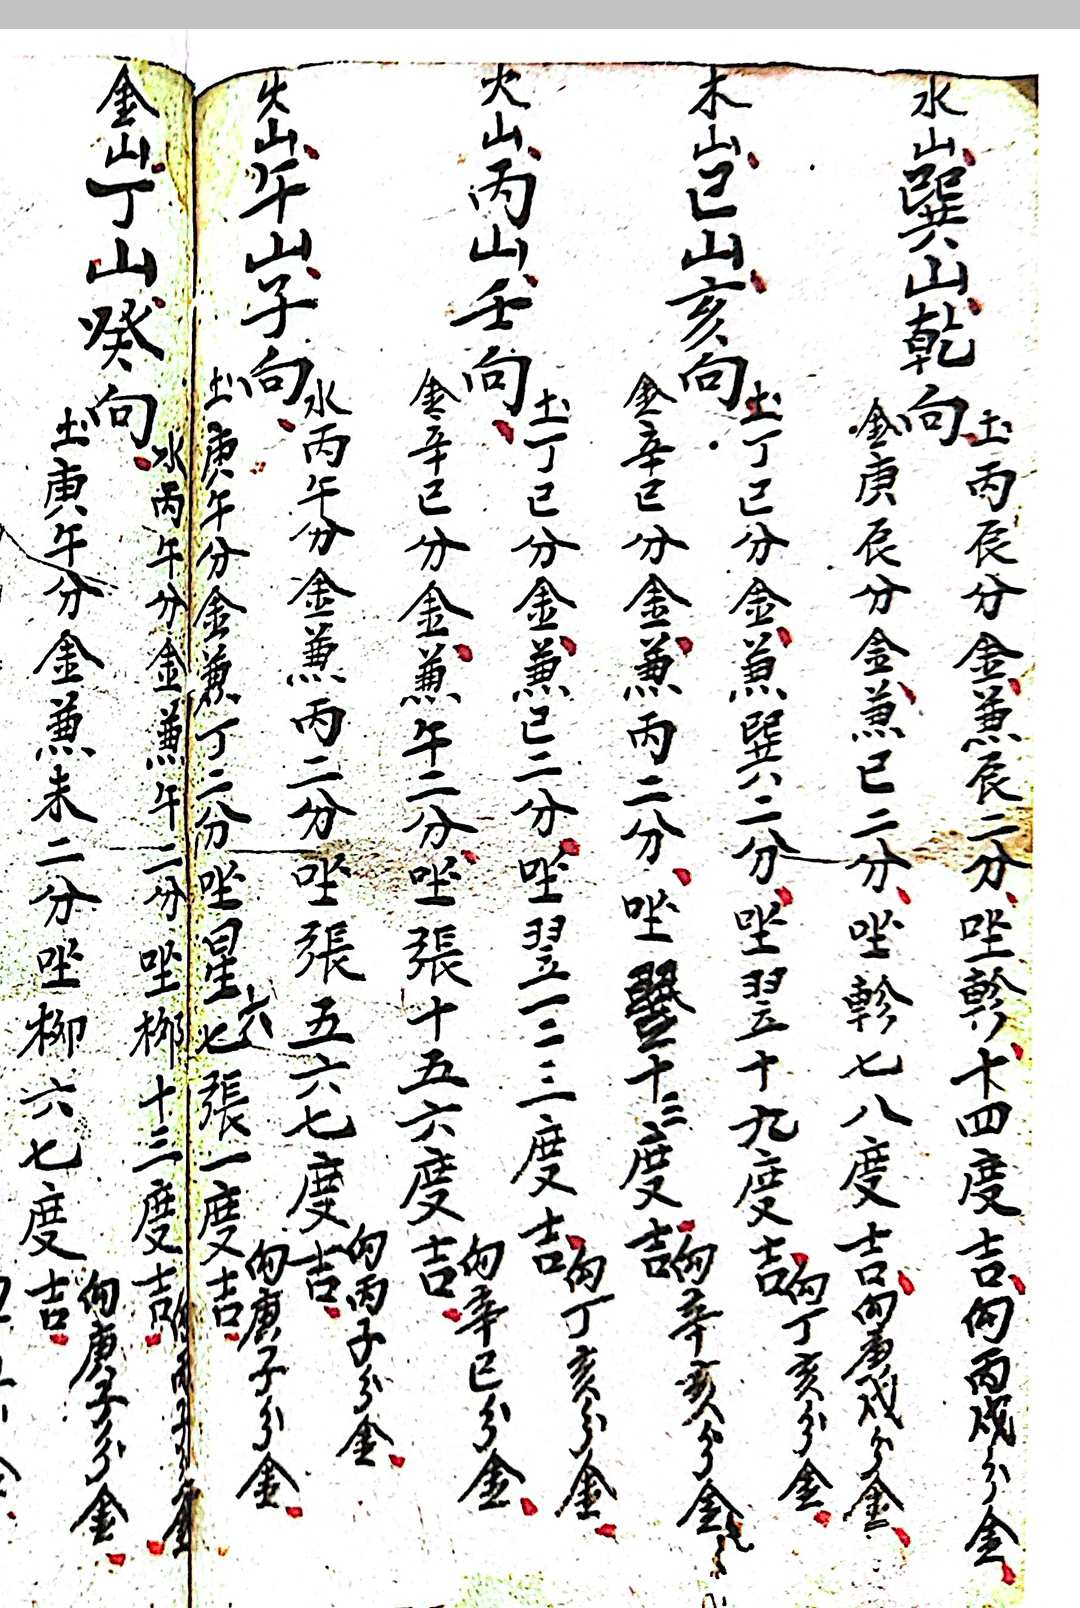 水山巽山乾向
土丙辰分金兼辰二分坐軫十四度吉向丙戌分金
金庚辰分金兼巳二分坐軫七八度吉向庚戌分金
木山巳山亥向
土丁巳分金兼巽二分坐翌十九度吉向丁亥分金
金辛巳分金兼丙二分坐十三度吉向辛亥分金
火山丙山壬向
土丁巳分金兼巳二分坐翌一二三度吉向丁亥分金
金辛巳分金兼午二分坐張十五六度吉向辛巳分金
火山午山子向
水丙午分金兼丙二分坐張五六七度吉向丙子分金
土庚午分金兼丁二分坐星六七張一度吉向庚子分金
金山丁山癸向
水丙午分金兼午二分坐柳十三度吉向丙子分金
土庚午分金兼未二分坐柳六七度吉向庚子分金